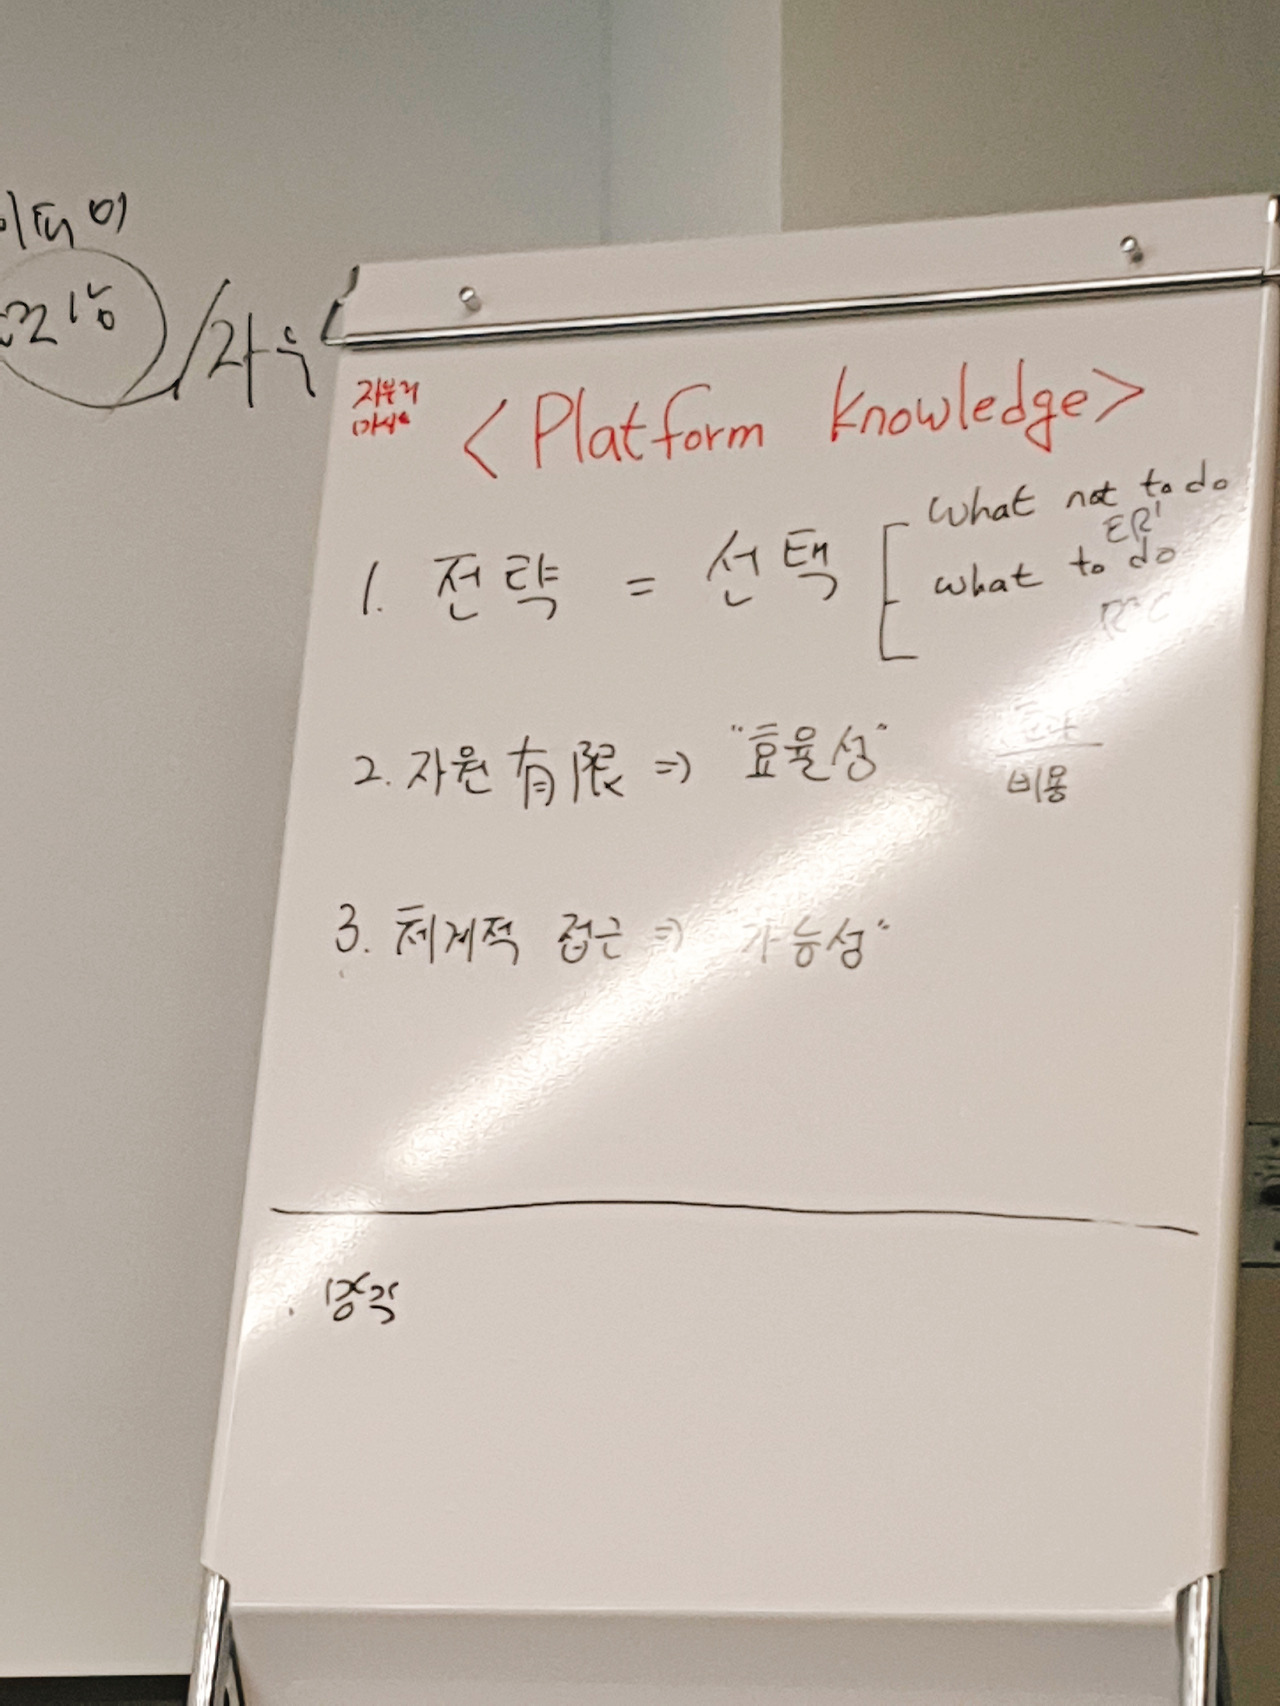 <Platform Knowledge>
1. 전략 = 선택 [ What not to do
ER
What to do
2. 자원 有限 ⇒ "효율성"
비용
3. 체계적 접근 ⇒ 가능성"